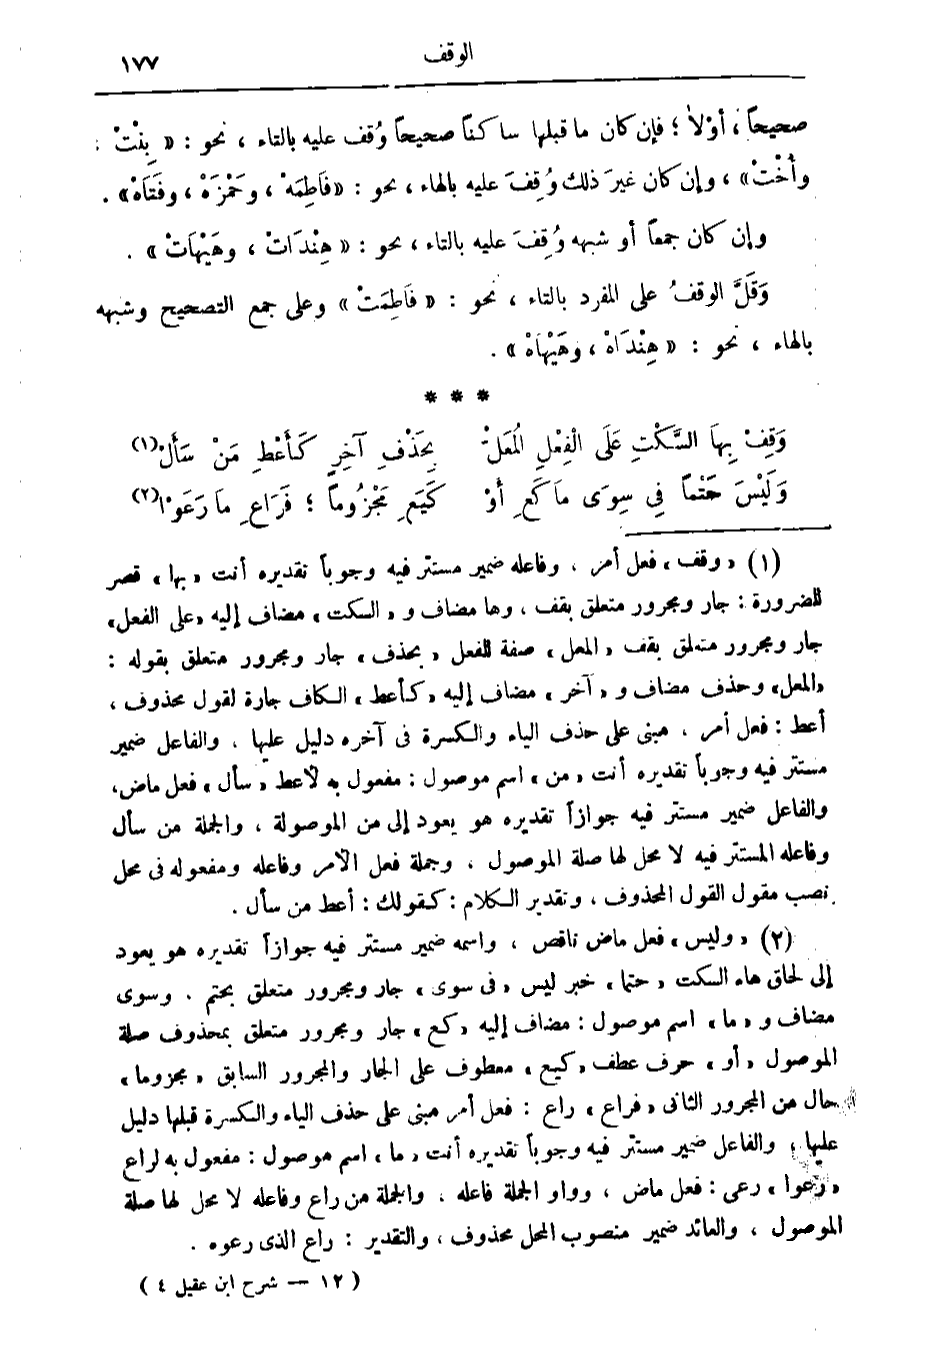 الوقف ١٧٧
صحيحاً، أوْلا ؛ فإن كان ما قبلها ساكناً صحيحاً وُقف عليه بالتاء ، نحو : « بِنْتْ ،
وأُخْتْ» ، وإن كان غيرَ ذلك وُقِفَ عليه بالهاء، نحو : «فَاطِمَهْ ، وحَمْزَهْ ، وفَتَاهْ» .
وإن كان جمعاً أو شبهه وُقِفَ عليه بالتاء ، نحو : « هِنْدَاتْ ، وهَيْهَاتْ » .
وَقَلَّ الوقفُ على المفرد بالتاء ، نحو : « فَاطِمَتْ » وعلى جمع التصحيح وشبهه
بالهاء ، نحو : « هِنْدَاهْ ، وهَيْهَاهْ » .
* * *
وَقِفْ بِهَا السَّكْتِ عَلَى الْفِعْلِ الْمُعَلّْ بِحَذْفِ آخِرٍ كَأَعْطِ مَنْ سَأَلْ (١)
وَلَيْسَ حَتْماً فِي سِوَى مَا كَعِ أَوْ كَيَعِ مَجْزُوماً ؛ فَرَاعِ مَا رَعَوْا (٢)
(١) «وقف» فعل أمر ، وفاعله ضمير مستتر فيه وجوباً تقديره أنت «بها» قصر
للضرورة : جار ومجرور متعلق بقف ، وها مضاف و « السكت » مضاف إليه «على الفعل»
جار ومجرور متعلق بقف « المعل » صفة للفعل « بحذف » جار ومجرور متعلق بقوله :
«المعل» وحذف مضاف و « آخر » مضاف إليه «كأعط» الكاف جارة لقول محذوف ،
أعط : فعل أمر ، مبنى على حذف الياء والكسرة فى آخره دليل عليها ، والفاعل ضمير
مستتر فيه وجوباً تقديره أنت «من» اسم موصول : مفعول به لأعط «سأل» فعل ماض،
والفاعل ضمير مستتر فيه جوازاً تقديره هو يعود إلى من الموصولة ، والجملة من سأل
وفاعله المستتر فيه لا محل لها صلة الموصول ، وجملة فعل الأمر وفاعله ومفعوله فى محل
نصب مقول القول المحذوف ، وتقدير الكلام : كقولك : أعط من سأل .
(٢) «وليس» فعل ماض ناقص ، واسمه ضمير مستتر فيه جوازاً تقديره هو يعود
إلى لحاق هاء السكت « حتما » خبر ليس « فى سوى » جار ومجرور متعلق بحتم . وسوى
مضاف و « ما » اسم موصول : مضاف إليه « كع » جار ومجرور متعلق بمحذوف صلة
الموصول « أو » حرف عطف « كيع » معطوف على الجار والمجرور السابق « مجزوما »
حال من المجرور الثانى « فراع » راع : فعل أمر مبنى على حذف الياء والكسرة قبلها دليل
عليها ، والفاعل ضمير مستتر فيه وجوباً تقديره أنت «ما» اسم موصول : مفعول به لراع
«رعوا» رعى : فعل ماض ، وواو الجملة فاعله ، والجملة من راع وفاعله لا محل لها صلة
الموصول ، والعائد ضمير منصوب المحل محذوف ، والتقدير : راع الذى رعوه .
( ١٢ — شرح ابن عقيل ٤ )